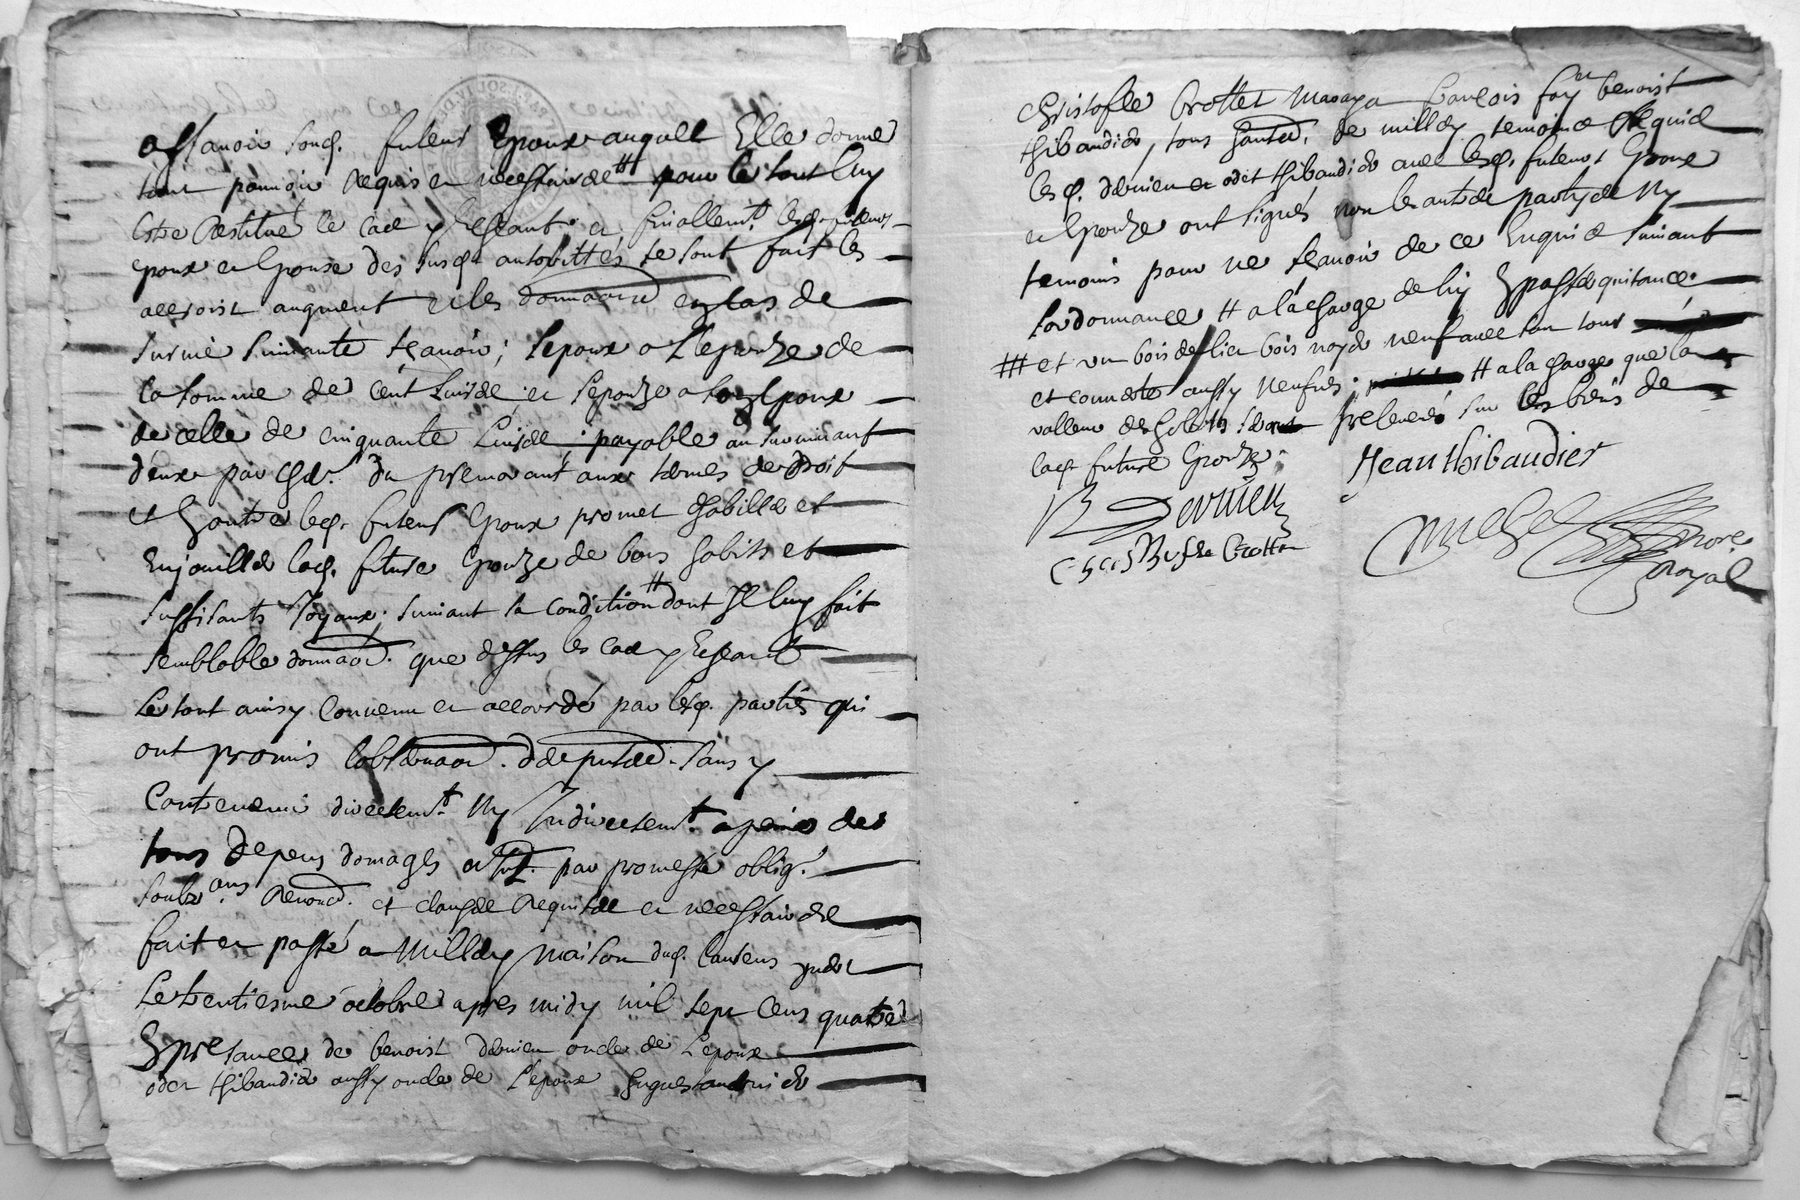 assavoir sond. futeur Epoux auquel Elle donne
tout pouvoir Requis et necessaire # pour le tout luy
Estre Restitué le cas y Escheant et finallemt. lesd. futeurs
epoux et Epouse des susd. authorittés se sont fait les
accroist augment et les donnaons en cas de
survie suivante sçavoir; Lepoux a L'epouze de
la somme de Cent Livres, et l'epouze a son Epoux
de celle de cinquante Livres; payable au survivant
d'eux par Her. du premorant aux termes de droit
et Houtre led. futeur Epoux promet d'habiller et
Enjoueller lad. future Epouze de bons habits et
suffisants Joyaux; suivant sa condition # dont Il luy fait
semblable donnaon. que dessus les cas y Escheant
Le tout ainsy Convenu et accordé par lesd. parties qui
ont promis l'observaon. des presens. sans y
Contrevenir directemt. Ny Indirectemt. a peine de
tous depens domages et Int. par promesse oblig.
soubz ons. Renond. et clauses Requises et necessaires
fait et passé a Millery Maison dud.
Le trentiesme octobre apres midy mil sept Cens quatre
En presance de benoist dervieu oncle de L'epoux
odet thibaudier aussy oncle de L'epoux hugues
Christofle Crottet françois fay benoist
thibaudier, tous de millery temoins Requis
lesd. dervieu et odet thibaudier avec lesd. futeurs Epoux
et Epouze ont signés non les autres parties Ny
temoins pour ne sçavoir de ce Enquis suivant
l'ordonnance # a la charge de luy En passer quitance
### et un bois de lict bois noyer neuf avec son tour
et couverte aussy neufves; # a la charge que la
valleur prelevée sur les biens de
lad. future Epouze.
Jean thibaudier
B Dervieu
Christofle Crottet
Michel
Nore.
Royal